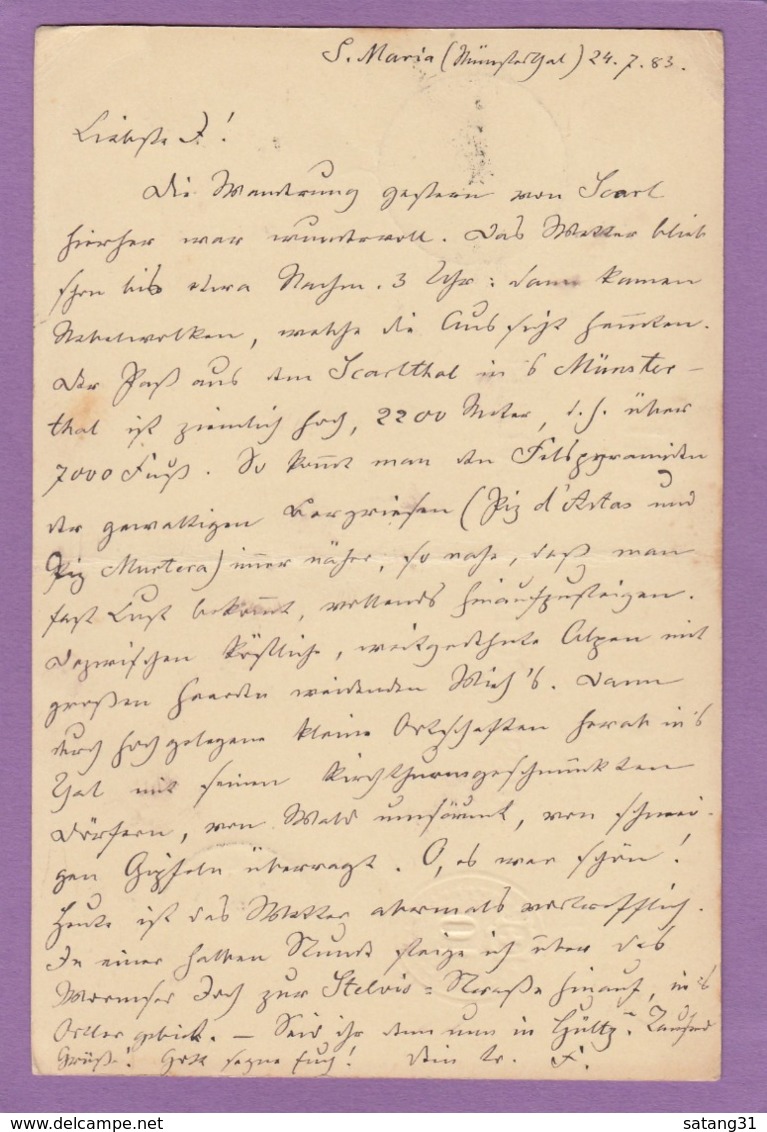 S. Maria (Münsterthal) 24. 7. 83.
Liebste J!
Die Wanderung gestern von Scarl
hierher war wundervoll. Das Wetter blieb
schön bis etwa Nachm. 3 Uhr: dann kamen
Nebelwolken, welche die Aussicht hemmten.
Der Paß aus dem Scarlthal in's Münster-
thal ist ziemlich hoch, 2200 Meter, d. h. über
7000 Fuß. So kommt man den Felspyramiden
der gewaltigen Bergriesen (Piz d'Astas und
Piz Murtera) immer näher, so nahe, daß man
fast Lust bekommt, vollends hinaufzusteigen.
Dazwischen köstliche, weitgedehnte Alpen mit
großen Heerden weidenden Vieh's. Dann
durch hochgelegene kleine Ortschaften herab in's
Thal mit seinen kirchthurmgeschmückten
Dörfern, von Wald umsäumt, von schnei-
gen Gipfeln überragt. O, es war schön!
Heute ist das Wetter abermals vortrefflich.
In einer halben Stunde steige ich über das
Wormser Joch zur Stelvio-Straße hinauf, in's
Ortlergebiet. — Seid ihr denn nun in Tausend
Grüße! Gott segne Euch! Dein tr. F.
satang31